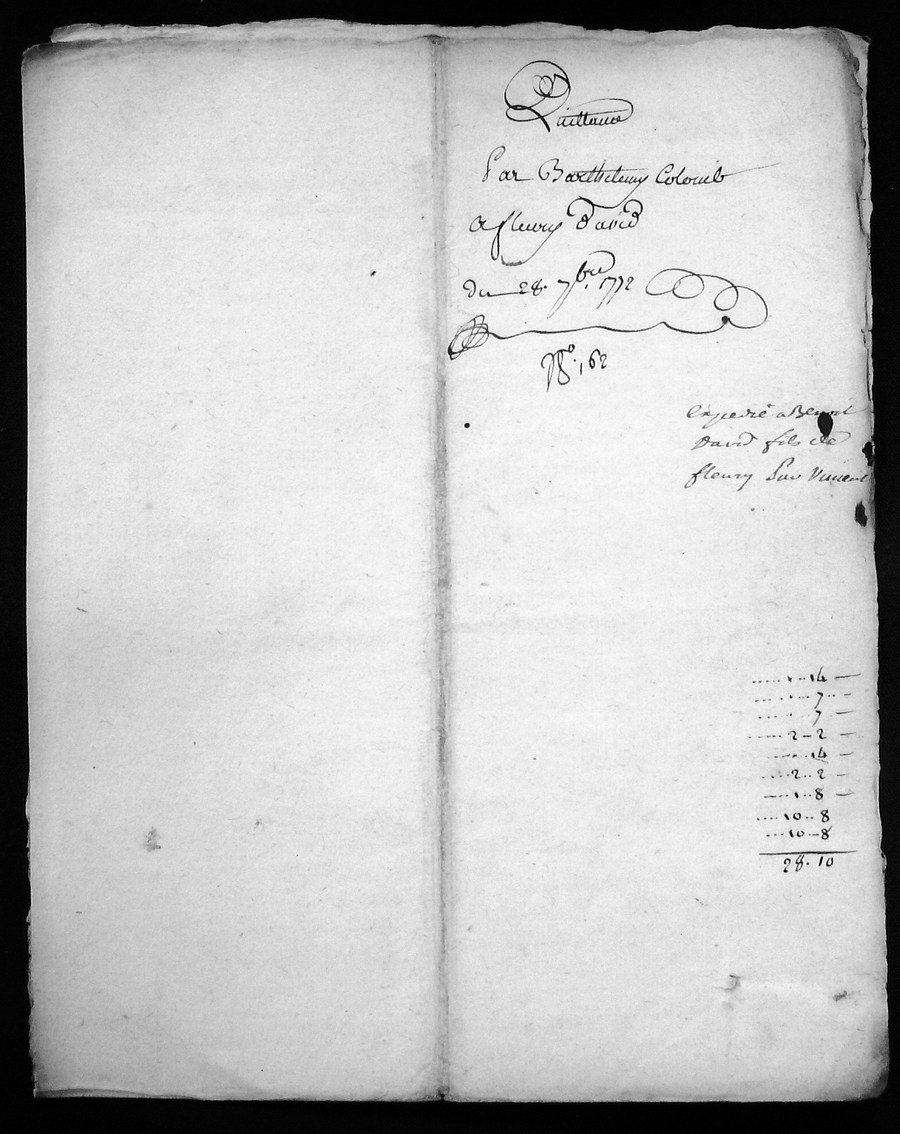 Quittance
Par Barthelemy Colomb
A fleury David
du 28. 7bre. 1772
No. 162
Expedié a Benoit
David fils de
fleury Par Vincent
14 —
7 —
7 —
2 - 2 —
14 —
2 . 2 —
1 .. 8 —
10 .. 8
10 - 8
28 . 10